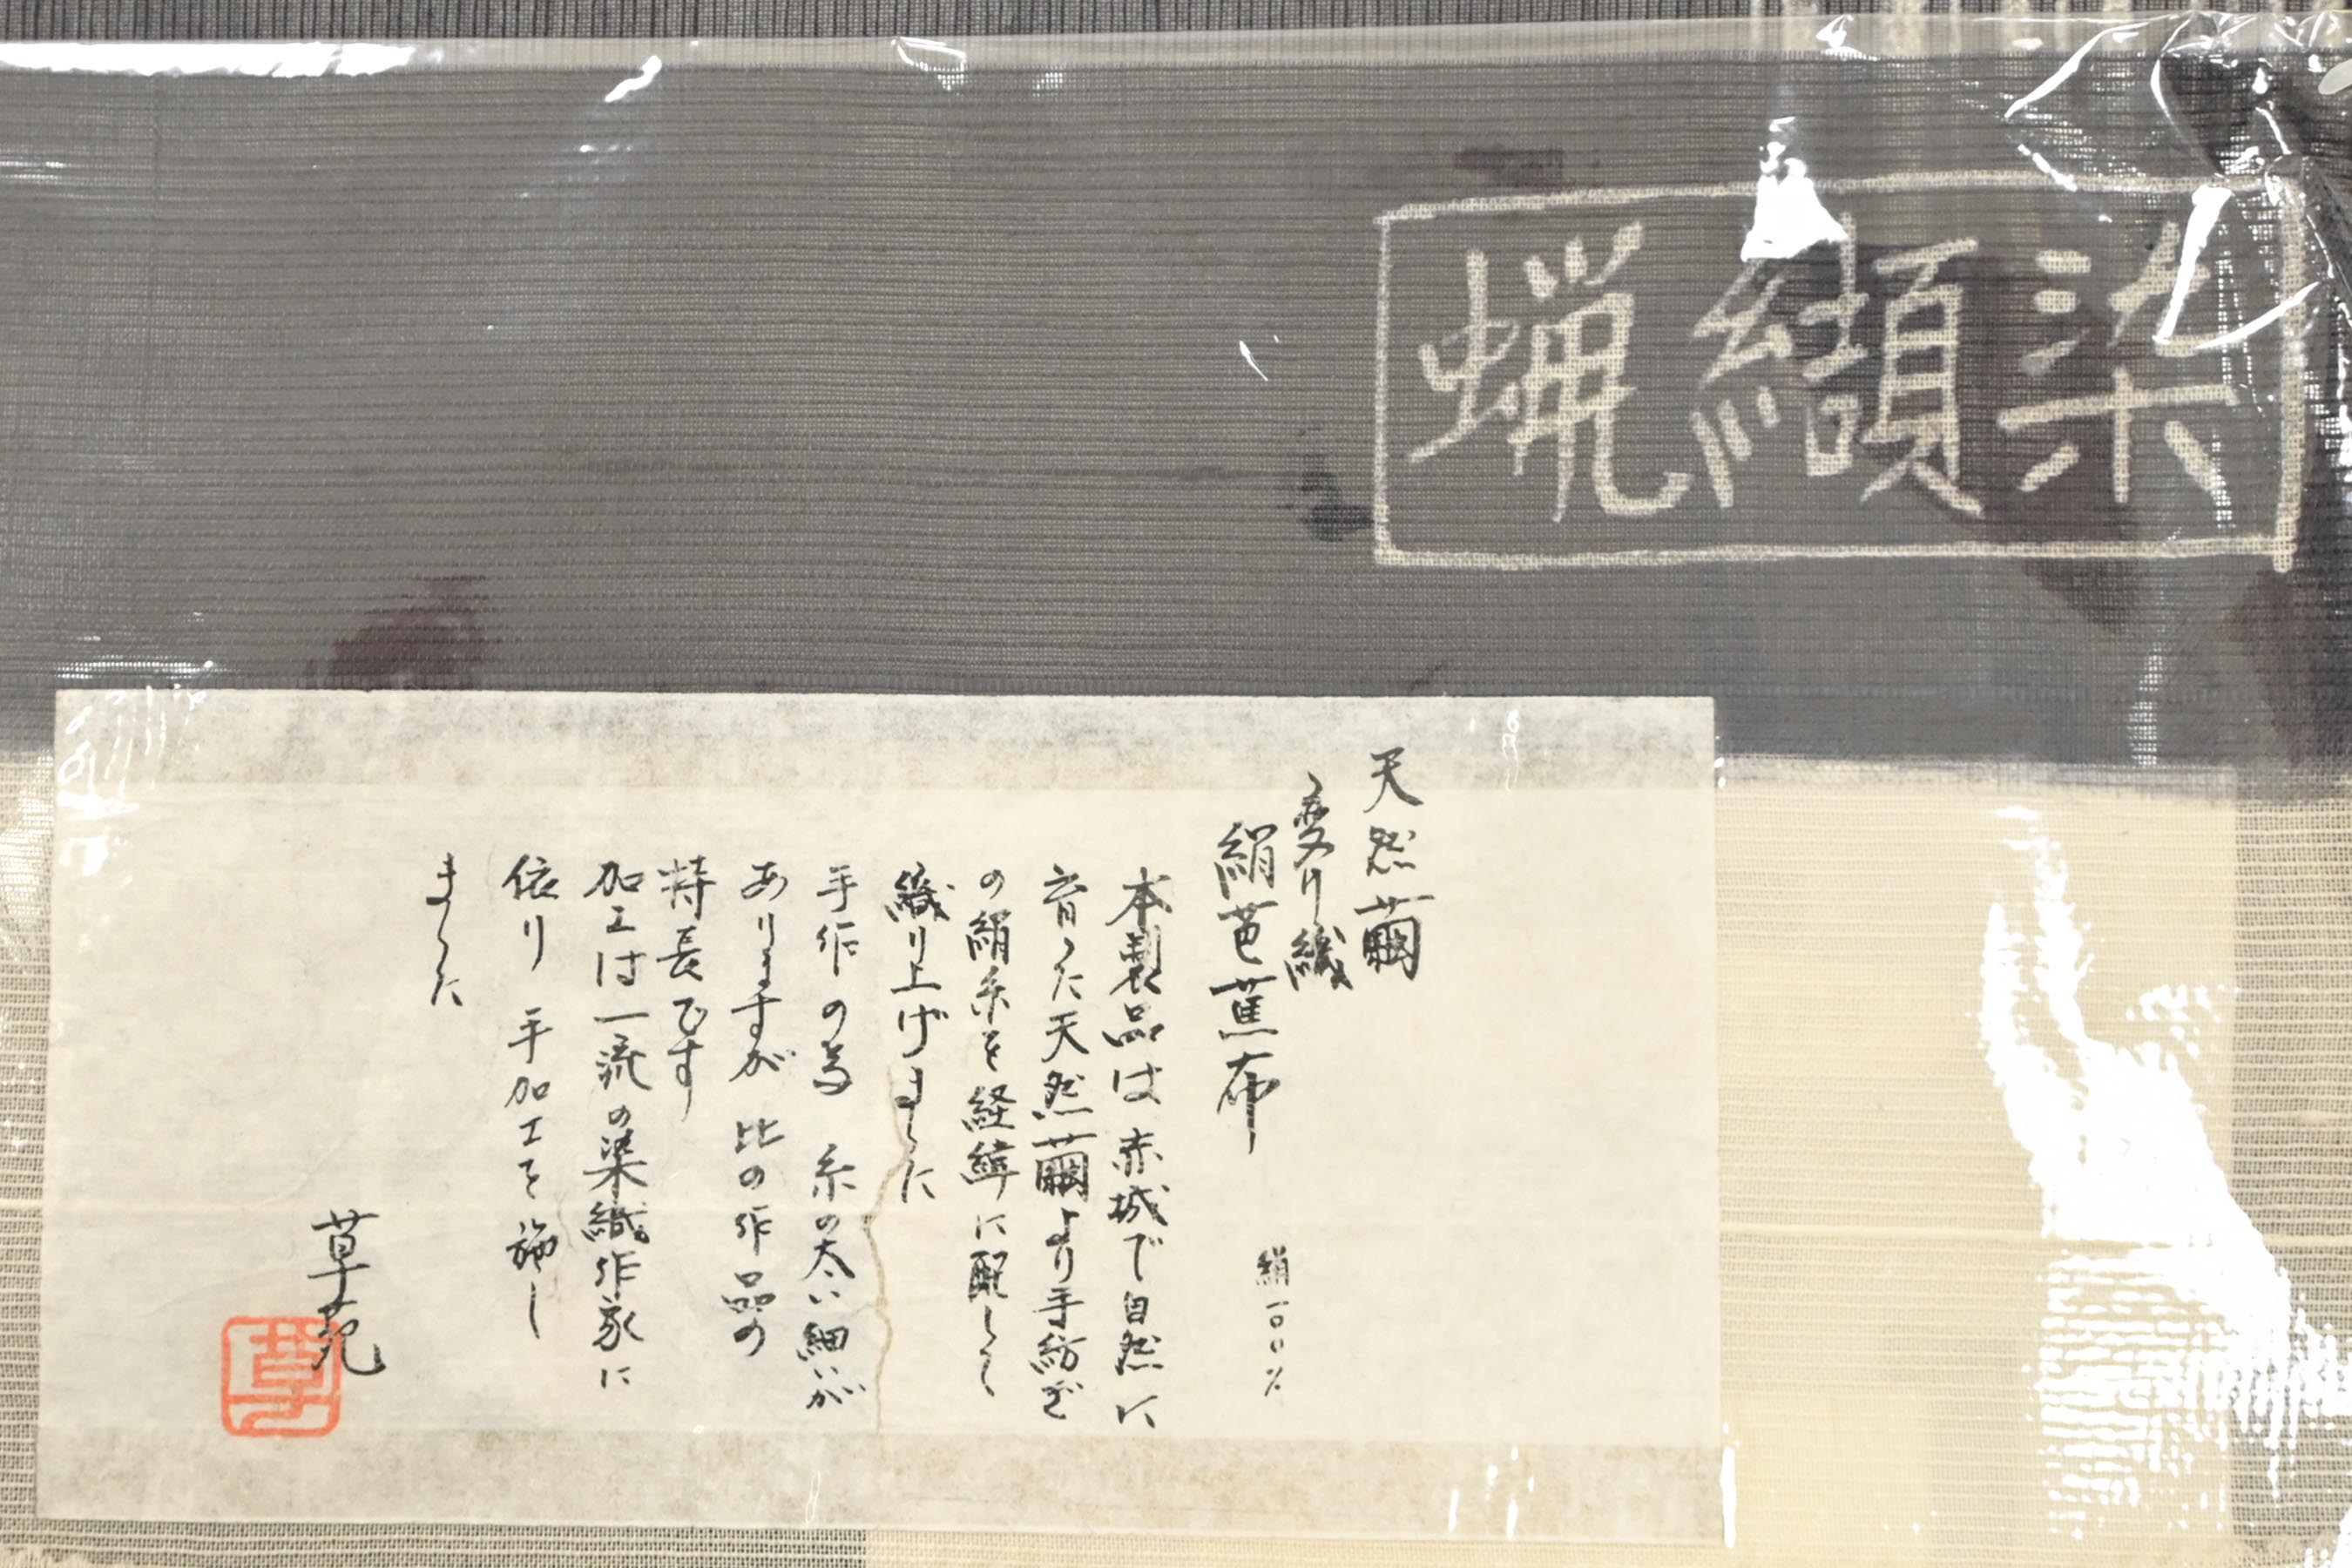 蝋纈染
天然繭
変り織
絹芭蕉布
絹一〇〇%
本製品は赤城で自然に
育った天然繭より手紡ぎ
の絹糸を経緯に配して
織り上げました
手作の為 糸の太い細いが
ありますが 比の作品の
特長です
加工は一流の染織作家に
依り 手加工を施し
ました
草苑
草